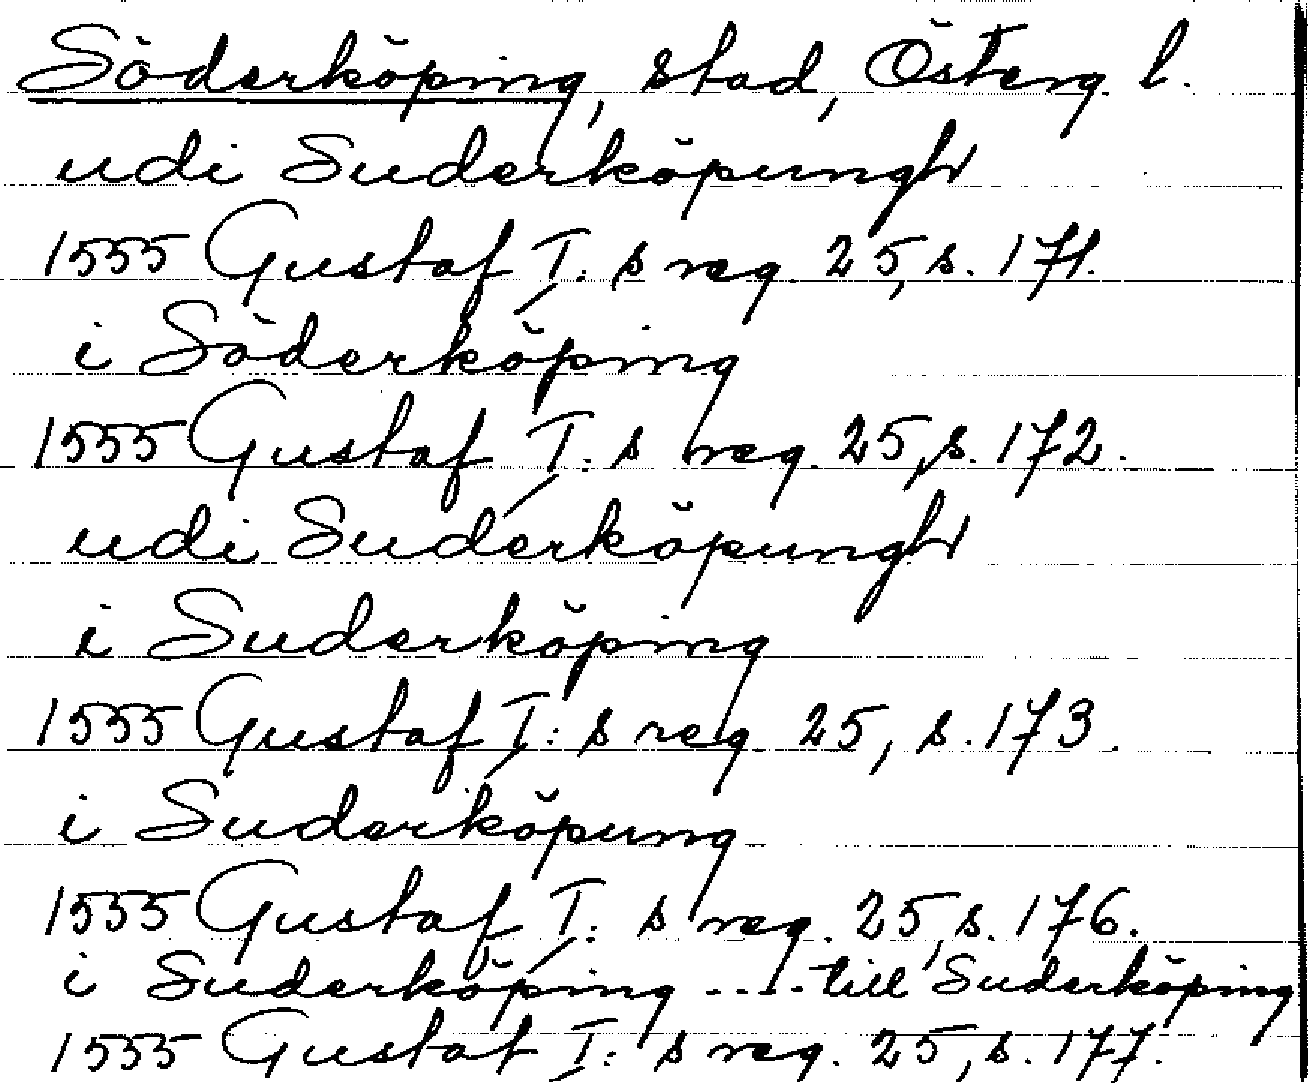 Söderköping, stad, Österg. l.
udi Suderköpungh
1555 Gustaf I: s reg. 25, s. 171.
i Söderköping
1555 Gustaf I: s reg. 25, s. 172.
udi Suderköpungh
i Suderköping
1555 Gustaf I: s reg. 25, s. 173.
i Suderköpung
1555 Gustaf I: s reg. 25, s. 176.
i Suderköping - - - - till Suderköping
1555 Gustaf I: s reg. 25, s. 177.